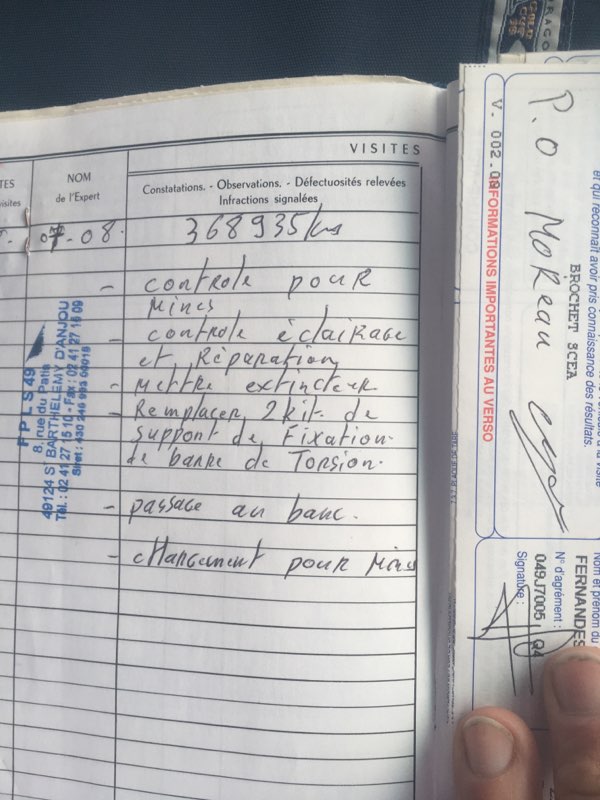 VISITES
NOM
de l'Expert
Constatations. - Observations. - Défectuosités relevées
Infractions signalées
-08.
368935 kms
- controle pour
Mines
- controle éclairage
et Réparation
- Mettre extincteur
- Remplacer 2 kit de
support de Fixation
de barre de Torsion.
- passage au banc.
- chargement pour Mines
PPLS 49
8, rue du Patis
49124 ST BARTHELEMY D'ANJOU
Tél. : 02 41 27 15 10 - Fax : 02 41 27 16 09
P.O Moreau
V. 002.
INFORMATIONS IMPORTANTES AU VERSO
BROCHET SCEA
et qui reconnaît avoir pris connaissance des résultats.
Nom et prénom du
FERNANDES
N° d'agrément :
049J7005
Signature :